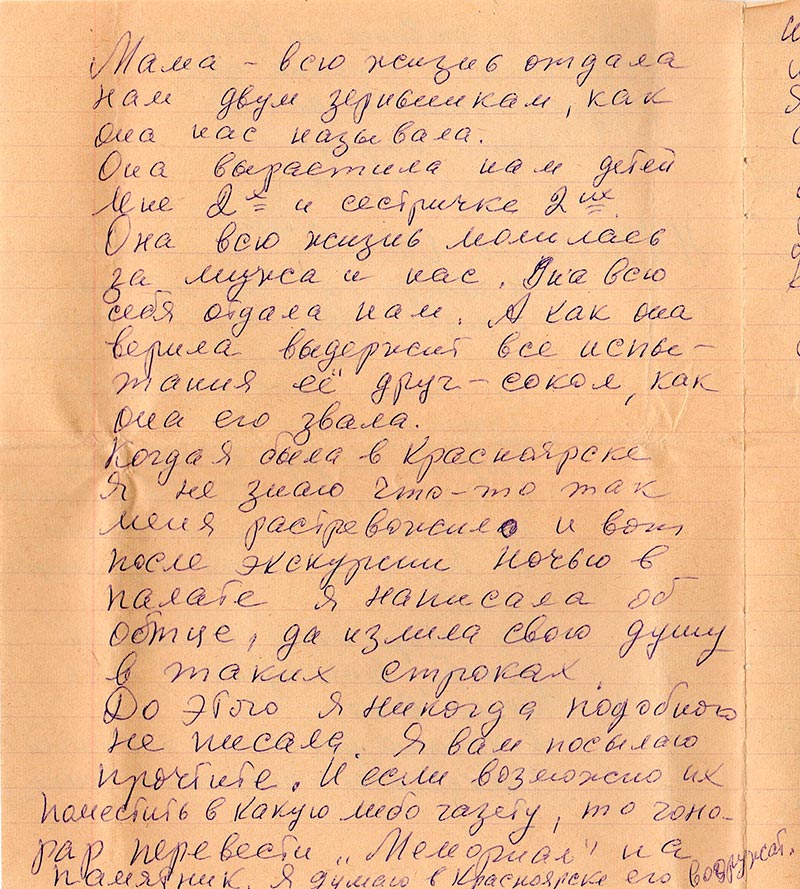 Мама - всю жизнь отдала
нам двум зернышкам, как
она нас называла.
Она вырастила нам детей
мне 2х и сестричке 2их
Она всю жизнь молилась
за мужа и нас. Она всю
себя отдала нам. А как она
верила выдержит все испы-
тания её друг-сокол, как
она его звала.
Когда я была в Красноярске
Я не знаю что-то так
меня растревожило и вот
после экскурсии ночью в
палате я написала об
обтце, да излила свою душу
в таких строках.
До этого я никогда подобного
не писала. Я вам посылаю
прочтите. И если возможно их
поместить в какую либо газету, то гоно-
рар перевести „Мемориал" на
памятник. Я думаю в Красноярске его водружат.